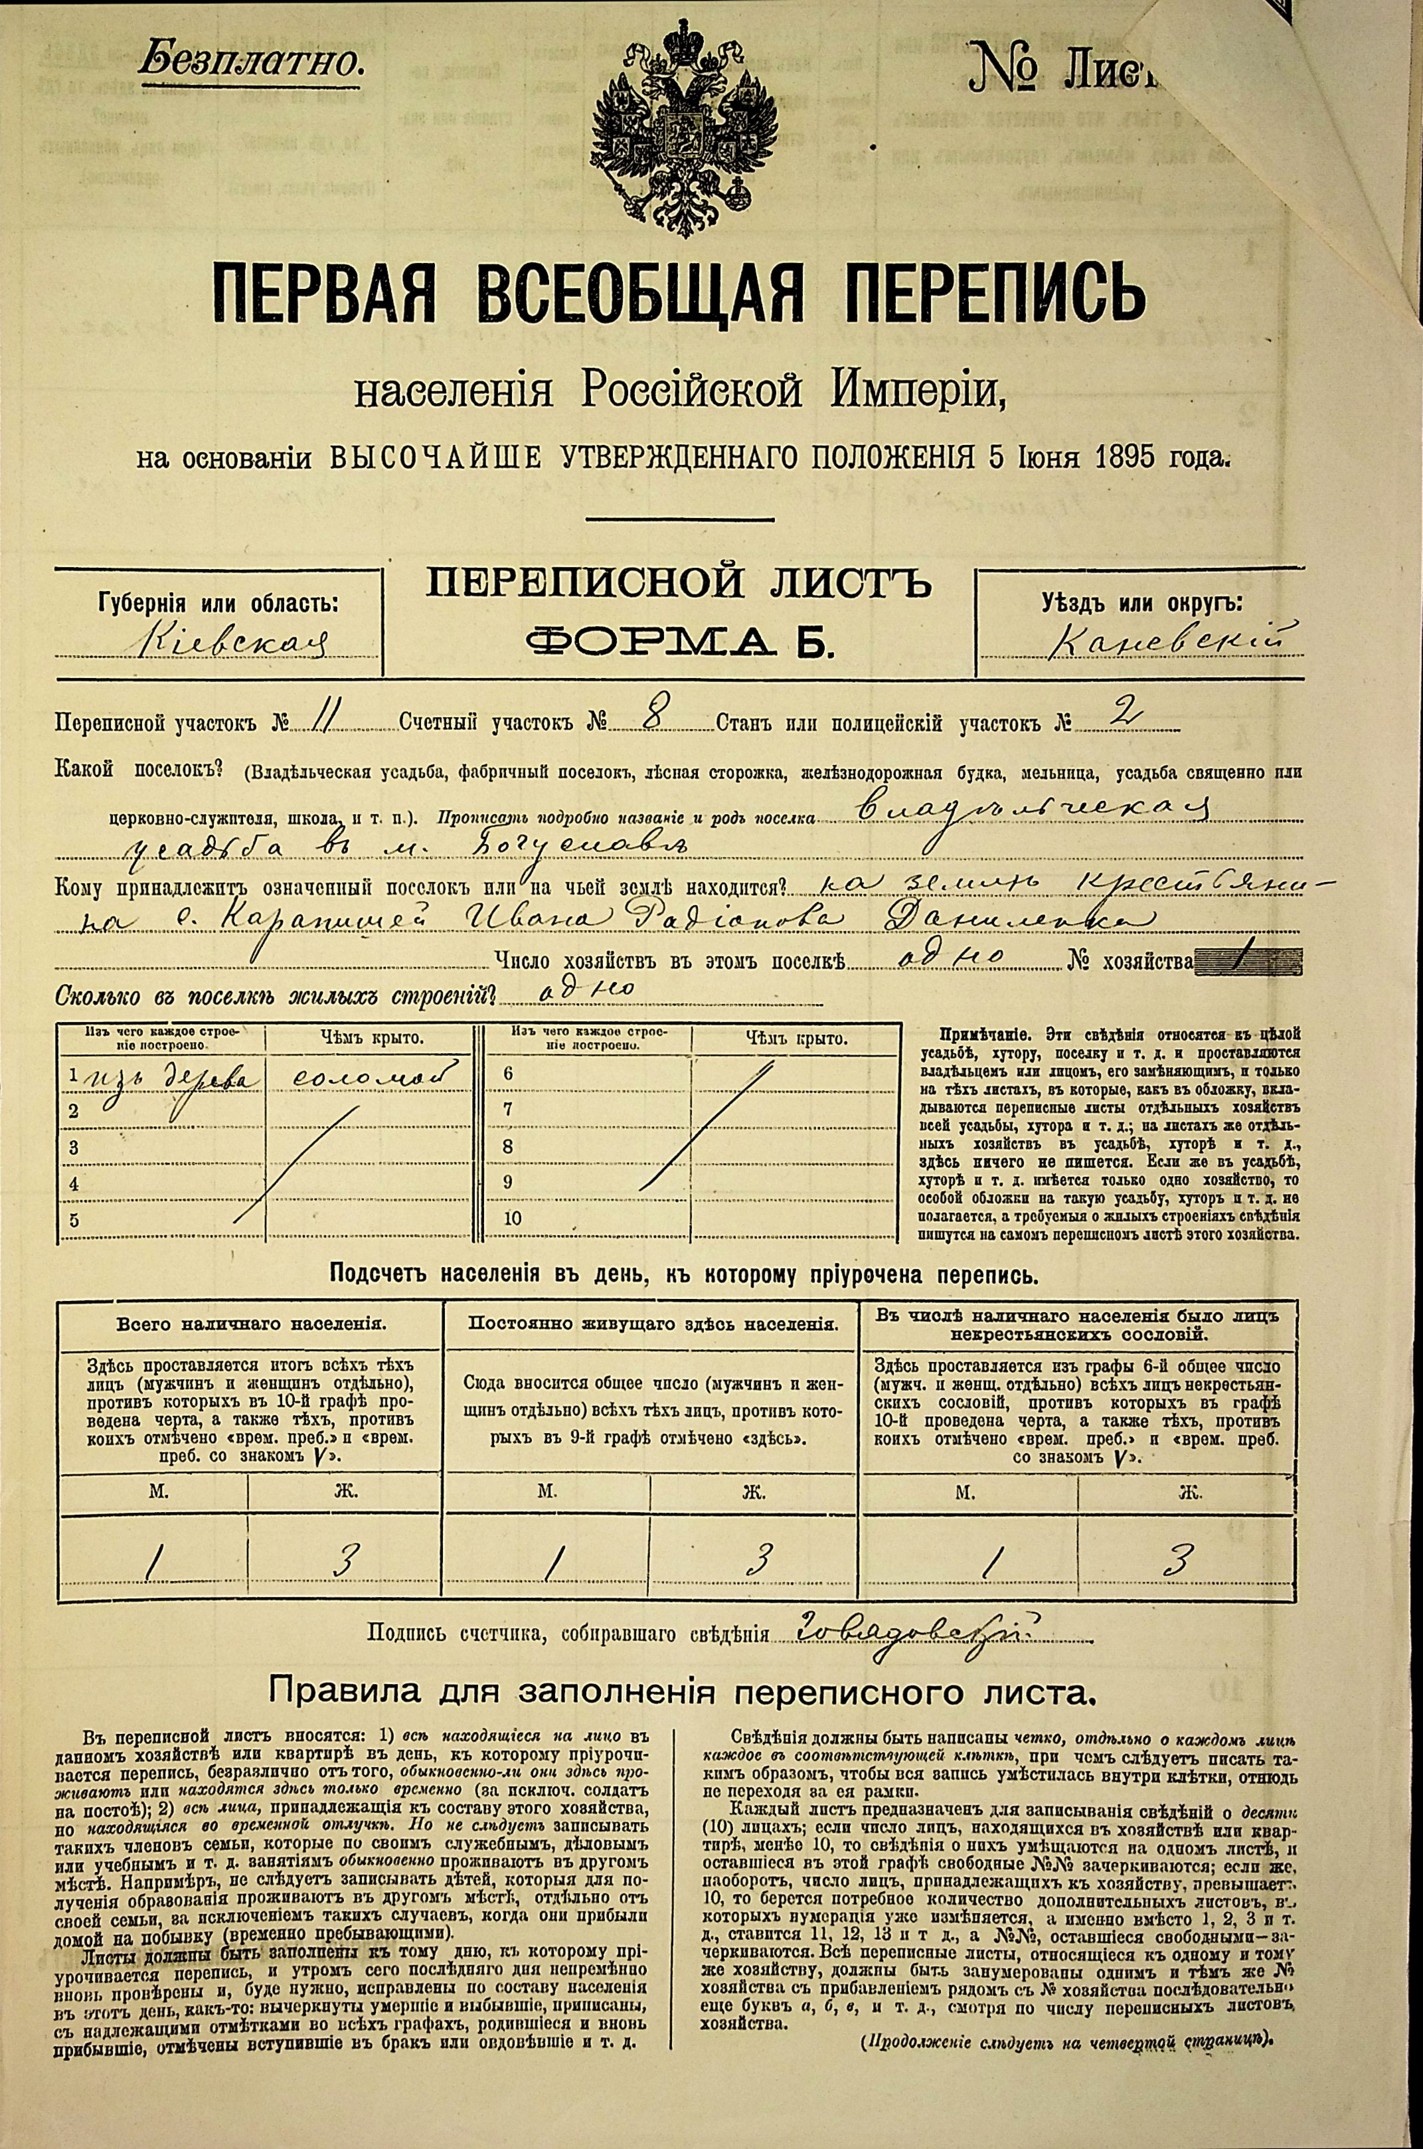 Безплатно.
№ Лист
ПЕРВАЯ ВСЕОБЩАЯ ПЕРЕПИСЬ
населенія Россійской Имперіи,
на основаніи ВЫСОЧАЙШЕ УТВЕРЖДЕННАГО ПОЛОЖЕНІЯ 5 Іюня 1895 года.
Губернія или область:
Кіевская
ПЕРЕПИСНОЙ ЛИСТЪ
ФОРМА Б.
Уѣздъ или округъ:
Каневскій
Переписной участокъ № 11 Счетный участокъ № 8 Станъ или полицейскій участокъ № 2
Какой поселокъ? (Владѣльческая усадьба, фабричный поселокъ, лѣсная сторожка, желѣзнодорожная будка, мельница, усадьба священно или
церковно-служителя, школа, и т. п.). Прописать подробно названіе и родъ поселка владѣльческая
усадьба въ м. Богуславѣ
Кому принадлежитъ означенный поселокъ или на чьей землѣ находится? на землѣ крестьяни-
на с. Карапишей Ивана Радіонова Даниленка
Число хозяйствъ въ этомъ поселкѣ одно № хозяйства 1
Сколько въ поселкѣ жилыхъ строеній? одно
Изъ чего каждое строе-
ніе построено.
Чѣмъ крыто.
Изъ чего каждое строе-
ніе построено.
Чѣмъ крыто.
1 изъ дерева соломой 6
2 7
3 8
4 9
5 10
Примѣчаніе. Эти свѣдѣнія относятся къ цѣлой
усадьбѣ, хутору, поселку и т. д. и проставляются
владѣльцемъ или лицомъ, его замѣняющимъ, и только
на тѣхъ листахъ, въ которые, какъ въ обложку, вкла-
дываются переписные листы отдѣльныхъ хозяйствъ
всей усадьбы, хутора и т. д.; на листахъ же отдѣль-
ныхъ хозяйствъ въ усадьбѣ, хуторѣ и т. д.,
здѣсь ничего не пишется. Если же въ усадьбѣ,
хуторѣ и т. д. имѣется только одно хозяйство, то
особой обложки на такую усадьбу, хуторъ и т. д. не
полагается, а требуемыя о жилыхъ строеніяхъ свѣдѣнія
пишутся на самомъ переписномъ листѣ этого хозяйства.
Подсчетъ населенія въ день, къ которому пріурочена перепись.
Всего наличнаго населенія.
Здѣсь проставляется итогъ всѣхъ тѣхъ
лицъ (мужчинъ и женщинъ отдѣльно),
противъ которыхъ въ 10-й графѣ про-
ведена черта, а также тѣхъ, противъ
коихъ отмѣчено «врем. преб.» и «врем.
преб. со знакомъ V».
Постоянно живущаго здѣсь населенія.
Сюда вносится общее число (мужчинъ и жен-
щинъ отдѣльно) всѣхъ тѣхъ лицъ, противъ кото-
рыхъ въ 9-й графѣ отмѣчено «здѣсь».
Въ числѣ наличнаго населенія было лицъ
некрестьянскихъ сословій.
Здѣсь проставляется изъ графы 6-й общее число
(мужч. и женщ. отдѣльно) всѣхъ лицъ некрестьян-
скихъ сословій, противъ которыхъ въ графѣ
10-й проведена черта, а также тѣхъ, противъ
коихъ отмѣчено «врем. преб.» и «врем. преб.
со знакомъ V».
М. Ж. М. Ж. М. Ж.
1 3 1 3 1 3
Подпись счетчика, собиравшаго свѣдѣнія
Правила для заполненія переписного листа.
Въ переписной листъ вносятся: 1) всѣ находящіеся на лицо въ
данномъ хозяйствѣ или квартирѣ въ день, къ которому пріурочи-
вается перепись, безразлично отъ того, обыкновенно-ли они здѣсь про-
живаютъ или находятся здѣсь только временно (за исключ. солдатъ
на постоѣ); 2) всѣ лица, принадлежащія къ составу этого хозяйства,
но находящіяся во временной отлучкѣ. Но не слѣдуетъ записывать
такихъ членовъ семьи, которые по своимъ служебнымъ, дѣловымъ
или учебнымъ и т. д. занятіямъ обыкновенно проживаютъ въ другомъ
мѣстѣ. Напримѣръ, не слѣдуетъ записывать дѣтей, которыя для по-
лученія образованія проживаютъ въ другомъ мѣстѣ, отдѣльно отъ
своей семьи, за исключеніемъ такихъ случаевъ, когда они прибыли
домой на побывку (временно пребывающими).
Листы должны быть заполнены къ тому дню, къ которому прі-
урочивается перепись, и утромъ сего послѣдняго дня непремѣнно
вновь провѣрены и, буде нужно, исправлены по составу населенія
въ этотъ день, какъ-то: вычеркнуты умершіе и выбывшіе, приписаны,
съ надлежащими отмѣтками во всѣхъ графахъ, родившіеся и вновь
прибывшіе, отмѣчены вступившіе въ бракъ или овдовѣвшіе и т. д.
Свѣдѣнія должны быть написаны четко, отдѣльно о каждомъ лицѣ
каждое въ соотвѣтствующей клѣткѣ, при чемъ слѣдуетъ писать та-
кимъ образомъ, чтобы вся запись умѣстилась внутри клѣтки, отнюдь
не переходя за ея рамки.
Каждый листъ предназначенъ для записыванія свѣдѣній о десяти
(10) лицахъ; если число лицъ, находящихся въ хозяйствѣ или квар-
тирѣ, менѣе 10, то свѣдѣнія о нихъ умѣщаются на одномъ листѣ, и
оставшіеся въ этой графѣ свободные №№ зачеркиваются; если же,
наоборотъ, число лицъ, принадлежащихъ къ хозяйству, превышаетъ
10, то берется потребное количество дополнительныхъ листовъ, въ
которыхъ нумерація уже измѣняется, а именно вмѣсто 1, 2, 3 и т.
д., ставится 11, 12, 13 и т д., а №№, оставшіеся свободными—за-
черкиваются. Всѣ переписные листы, относящіеся къ одному и тому
же хозяйству, должны быть занумерованы однимъ и тѣмъ же №
хозяйства съ прибавленіемъ рядомъ съ № хозяйства послѣдовательно
еще буквъ а, б, в, и т. д., смотря по числу переписныхъ листовъ,
хозяйства.
(Продолженіе слѣдуетъ на четвертой страницѣ).